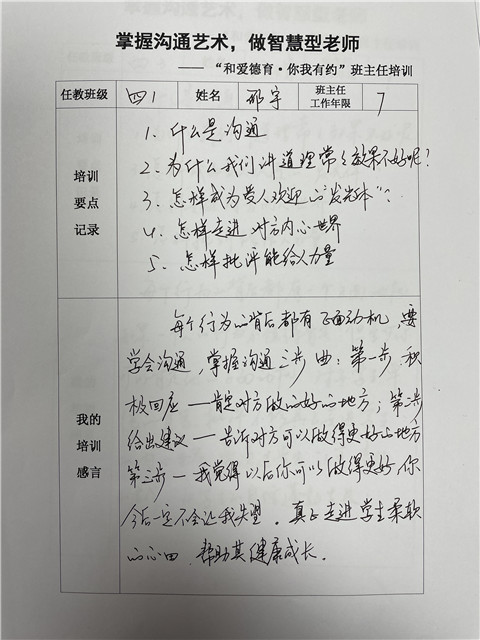 掌握沟通艺术，做智慧型老师
——“和爱德育·你我有约”班主任培训
任教班级 四1 姓名 邵宇 班主任工作年限 7
培训要点记录
1. 什么是沟通
2. 为什么我们讲道理常常效果不好呢？
3. 怎样成为受人欢迎的“发光体”？
4. 怎样走进对方内心世界
5. 怎样批评能给人力量
我的培训感言
每个行为的背后都有正面动机，要
学会沟通，掌握沟通三步曲：第一步 积
极回应——肯定对方做的好的地方；第二步
给出建议——告诉对方可以做得更好的地方
第三步—我觉得以后你可以做得更好，你
今后一定不会让我失望。真正走进学生柔软
的心田，帮助其健康成长。